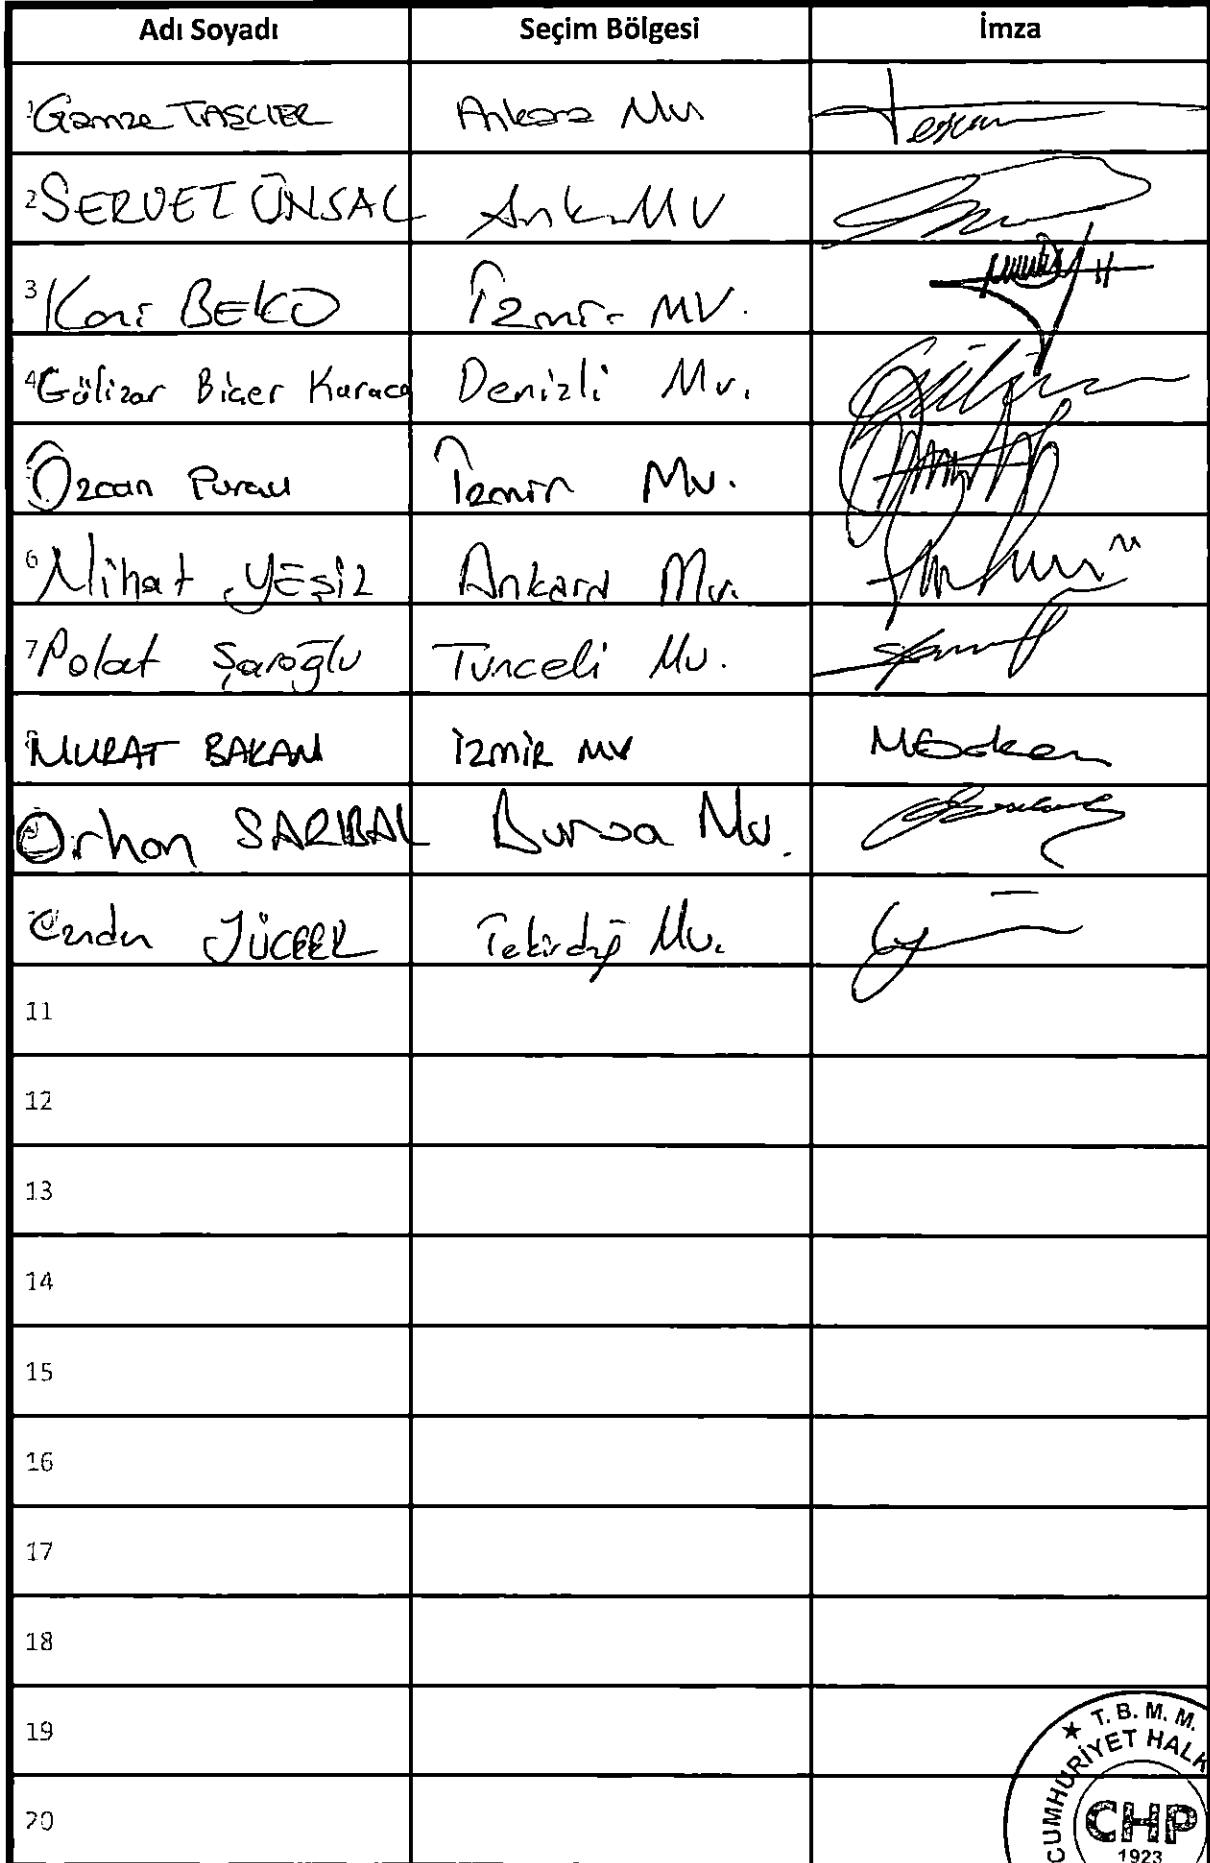 Adı Soyadı Seçim Bölgesi İmza
1 Gamze TAŞCIER Ankara Mv
2 SERVET ÜNSAL Ank. MV
3 Kani BEKO İzmir MV.
4 Gülizar Biçer Karaca Denizli Mv.
Özcan Purçu İzmir Mv.
6 Nihat YEŞİL Ankara Mv.
7 Polat Şaroğlu Tunceli Mv.
MURAT BAKAN İZMİR MV
Orhan SARIBAL Bursa Mv.
Candan YÜCEER Tekirdağ Mv.
11
12
13
14
15
16
17
18
19
20
★ T. B. M. M.
CUMHURİYET HALK
CHP
1923